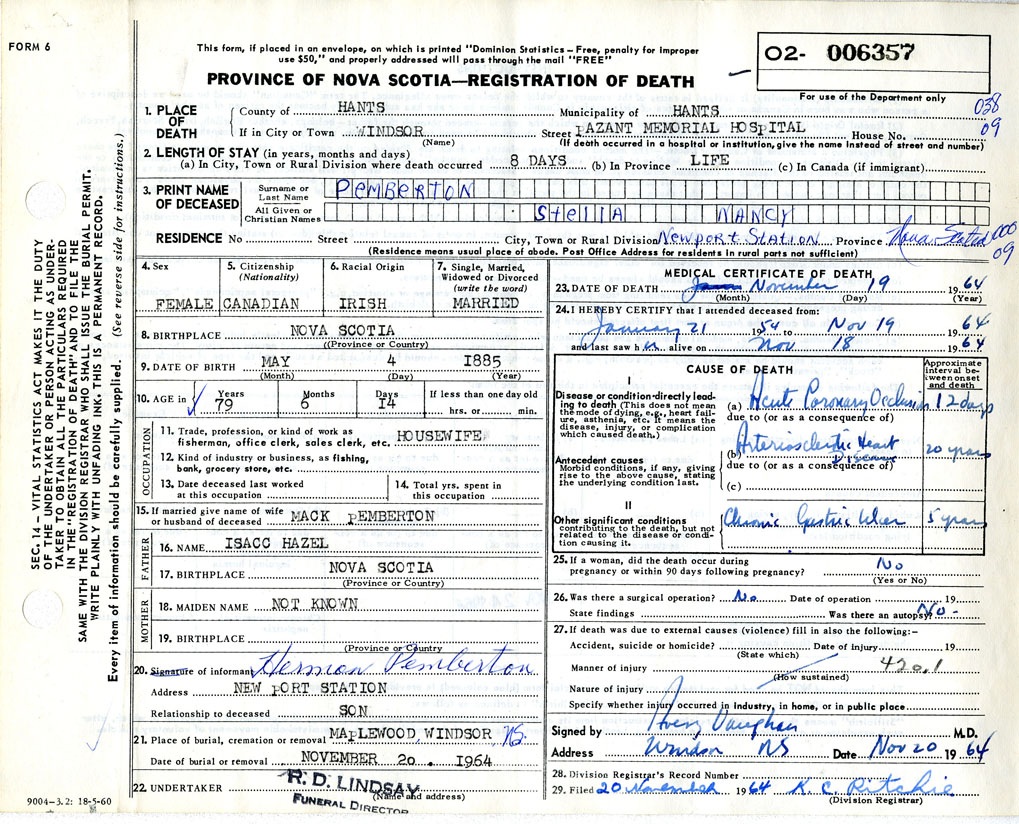 FORM 6
This form, if placed in an envelope, on which is printed "Dominion Statistics – Free, penalty for improper
use $50," and properly addressed will pass through the mail "FREE"
PROVINCE OF NOVA SCOTIA—REGISTRATION OF DEATH
02- 006357
For use of the Department only
038
09
SEC. 14 – VITAL STATISTICS ACT MAKES IT THE DUTY
OF THE UNDERTAKER OR PERSON ACTING AS UNDER-
TAKER TO OBTAIN ALL THE PARTICULARS REQUIRED
IN THE "REGISTRATION OF DEATH" AND TO FILE THE
SAME WITH THE DIVISION REGISTRAR WHO SHALL ISSUE THE BURIAL PERMIT.
WRITE PLAINLY WITH UNFADING INK. THIS IS A PERMANENT RECORD.
Every item of information should be carefully supplied. (See reverse side for instructions.)
1. PLACE OF DEATH
County of HANTS Municipality of HANTS
If in City or Town WINDSOR Street PAZANT MEMORIAL HOSPITAL House No.
(Name) (If death occurred in a hospital or institution, give the name instead of street and number)
2. LENGTH OF STAY (in years, months and days)
(a) In City, Town or Rural Division where death occurred 8 DAYS (b) In Province LIFE (c) In Canada (if immigrant)
3. PRINT NAME OF DECEASED
Surname or Last Name PEMBERTON
All Given or Christian Names StellA NANCY
RESIDENCE No Street City, Town or Rural Division Newport Station Province Nova Scotia
000
09
(Residence means usual place of abode. Post Office Address for residents in rural parts not sufficient)
4. Sex FEMALE
5. Citizenship (Nationality) CANADIAN
6. Racial Origin IRISH
7. Single, Married, Widowed or Divorced (write the word) MARRIED
8. BIRTHPLACE NOVA SCOTIA
(Province or Country)
9. DATE OF BIRTH MAY 4 1885
(Month) (Day) (Year)
10. AGE in Years 79 Months 6 Days 14 If less than one day old hrs. or min.
OCCUPATION
11. Trade, profession, or kind of work as
fisherman, office clerk, sales clerk, etc. HOUSEWIFE
12. Kind of industry or business, as fishing,
bank, grocery store, etc.
13. Date deceased last worked
at this occupation
14. Total yrs. spent in
this occupation
15. If married give name of wife
or husband of deceased MACK PEMBERTON
FATHER
16. NAME ISACC HAZEL
17. BIRTHPLACE NOVA SCOTIA
(Province or Country)
MOTHER
18. MAIDEN NAME NOT KNOWN
19. BIRTHPLACE
(Province or Country)
20. Signature of informant Hermon Pemberton
Address NEW PORT STATION
Relationship to deceased SON
21. Place of burial, cremation or removal MAPLEWOOD, WINDSOR NS.
Date of burial or removal NOVEMBER 20. 1964
22. UNDERTAKER R. D. LINDSAY
FUNERAL DIRECTOR
(Name and address)
9004—3.2: 18-5-60
MEDICAL CERTIFICATE OF DEATH
23. DATE OF DEATH November 19 1964
(Month) (Day) (Year)
24. I HEREBY CERTIFY that I attended deceased from:
January 21 1954 to Nov 19 1964
and last saw h er alive on Nov 18 1964
CAUSE OF DEATH
Approximate interval between onset and death
I
Disease or condition directly leading to death (This does not mean the mode of dying, e.g., heart failure, asthenia, etc. It means the disease, injury, or complication which caused death.)
(a) Acute Coronary Occlusion 12 days
due to (or as a consequence of)
Antecedent causes
Morbid conditions, if any, giving rise to the above cause, stating the underlying condition last.
(b) Arteriosclerotic Heart Disease 20 years
due to (or as a consequence of)
(c)
II
Other significant conditions
contributing to the death, but not related to the disease or condition causing it.
Chronic Gastric Ulcer 5 years
25. If a woman, did the death occur during
pregnancy or within 90 days following pregnancy? No
(Yes or No)
26. Was there a surgical operation? No. Date of operation 19
State findings Was there an autopsy? No -
27. If death was due to external causes (violence) fill in also the following:—
Accident, suicide or homicide? Date of injury 19
(State which)
Manner of injury 420.1
(How sustained)
Nature of injury
Specify whether injury occurred in industry, in home, or in public place
Signed by Avery Vaughan M.D.
Address Windsor NS Date Nov 20 1964
28. Division Registrar's Record Number
29. Filed 20 November 1964 K. C. Ritchie
(Division Registrar)